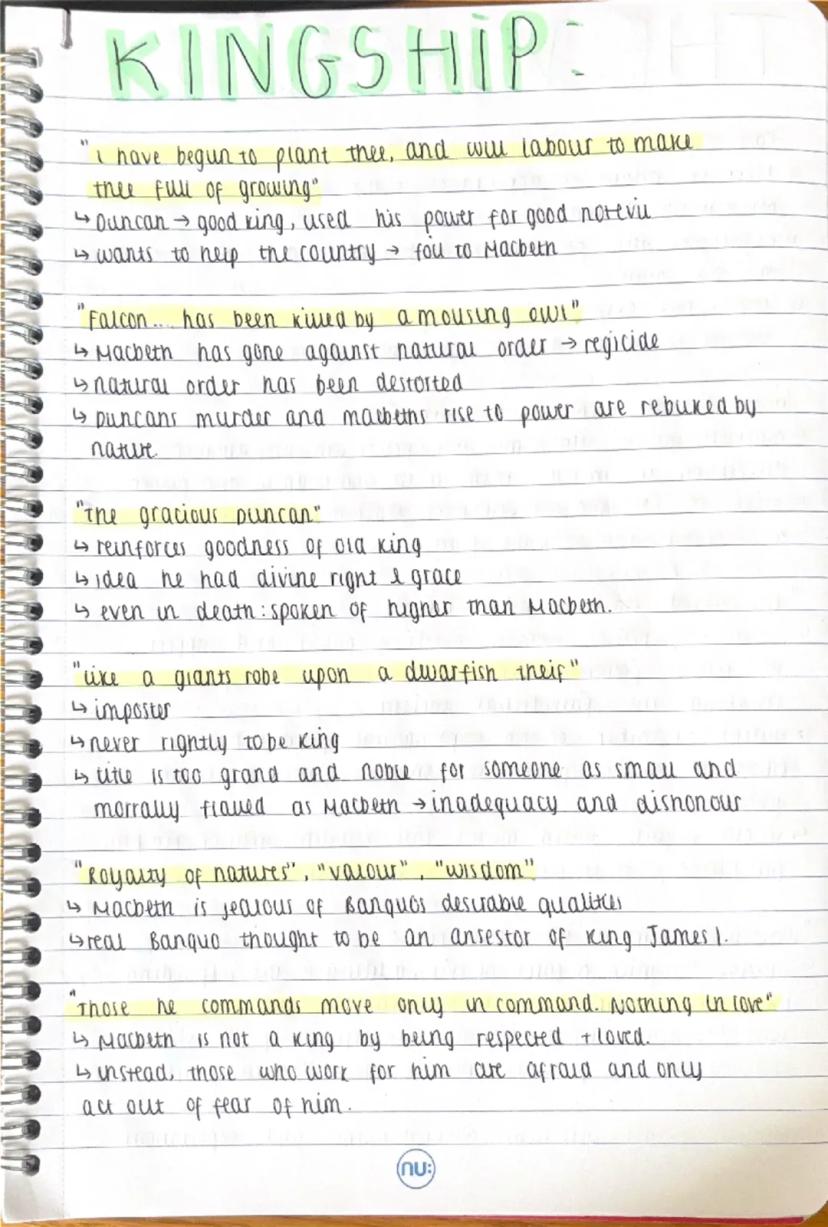 KINGSHIP:
"I have begun to plant thee, and will labour to make
thee full of growing"
↳ Duncan → good king, used his power for good not evil
↳ wants to help the country → foil to Macbeth
"Falcon... has been killed by a mousing owl"
↳ Macbeth has gone against natural order → regicide
↳ natural order has been destorted
↳ Duncans murder and macbeths rise to power are rebuked by
nature.
"The gracious Duncan"
↳ reinforces goodness of old king
↳ idea he had divine right & grace
↳ even in death: spoken of higher than Macbeth.
"like a giants robe upon a dwarfish theif"
↳ imposter
↳ never rightly to be king
↳ title is too grand and noble for someone as small and
morrally flawed as Macbeth → inadequacy and dishonour
"Royalty of natures", "valour", "wisdom"
↳ Macbeth is jealous of Banquos desirable qualities
↳ real Banquo thought to be an ansestor of King James I.
"Those he commands move only in command. Nothing in love"
↳ Macbeth is not a king by being respected + loved.
↳ instead, those who work for him are afraid and only
act out of fear of him.
nu: